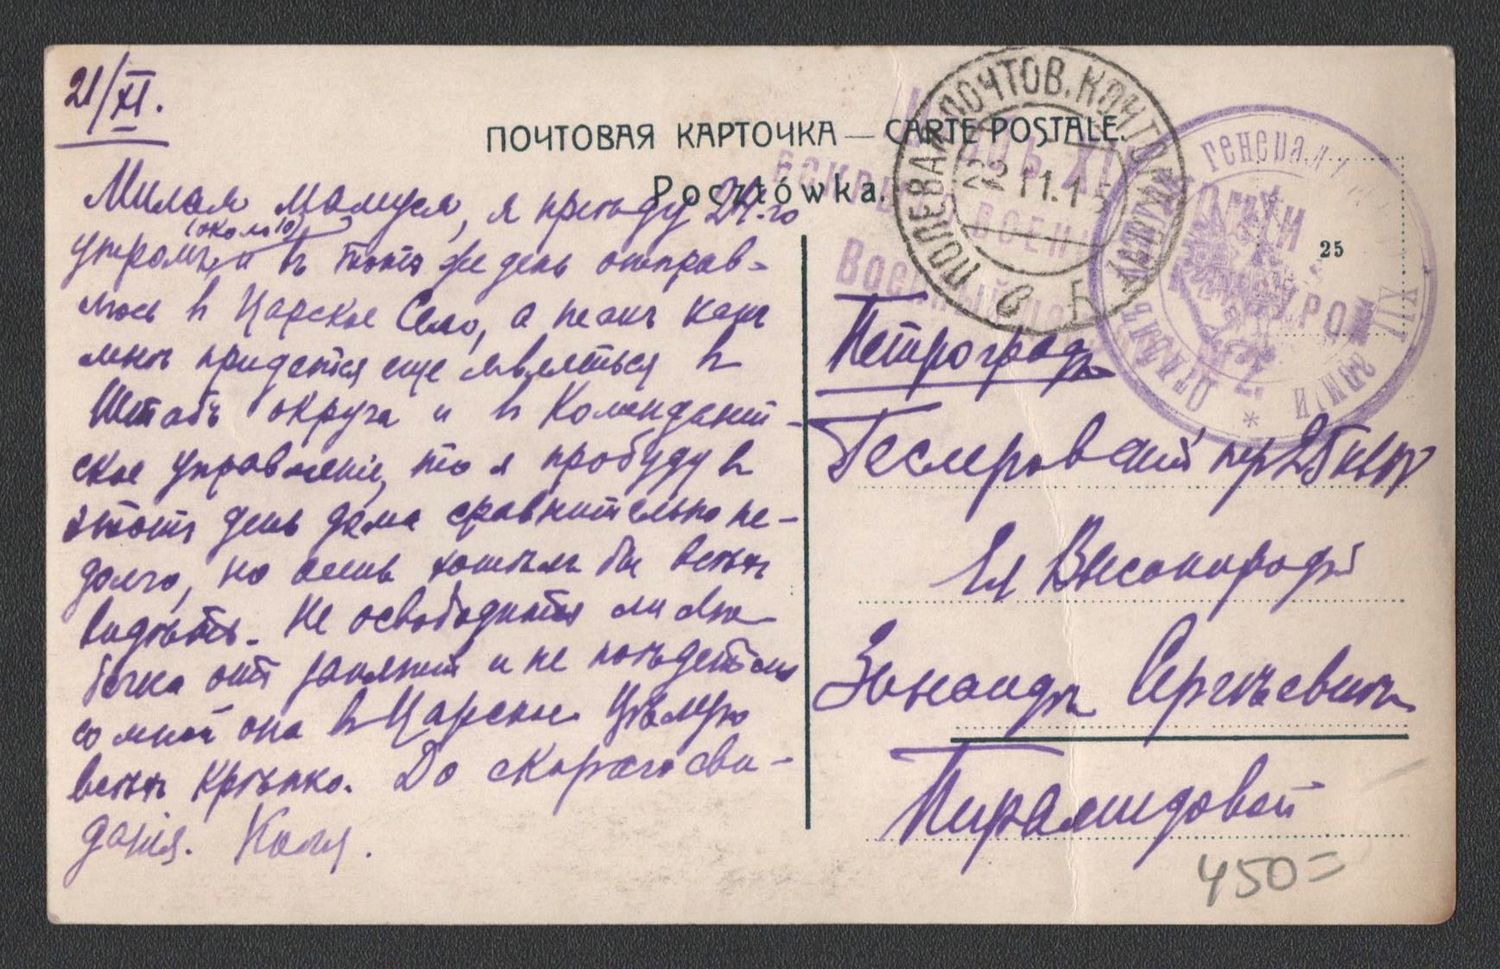 21/XI.
ПОЧТОВАЯ КАРТОЧКА — CARTE POSTALE.
Pocztówka.
Милая мамуся, я приѣду 24-го
(около 10)
утромъ, и въ тотъ же день отправ-
люсь въ Царское Село, а такъ какъ
мнѣ придется еще явиться въ
Штабъ округа и въ Комендант-
ское управленіе, то я пробуду въ
этотъ день дома сравнительно не-
долго, но очень хотѣлъ бы всѣхъ
видѣть. Не освободится ли
отъ занятій и не поѣдетъ ли
со мной она въ Царское. Цѣлую
всѣхъ крѣпко. До скораго сви-
данія. Коля.
ПОЛЕВАЯ ПОЧТОВ. КОНТОРА
22 11 15
в Б
ГЕНЕРАЛ
XII АРМІИ
25
Петроградъ
Геслеровскій пер 25 кв
Ея Высокородію
Зинаидѣ Сергѣевнѣ
Пирамидовой
450=